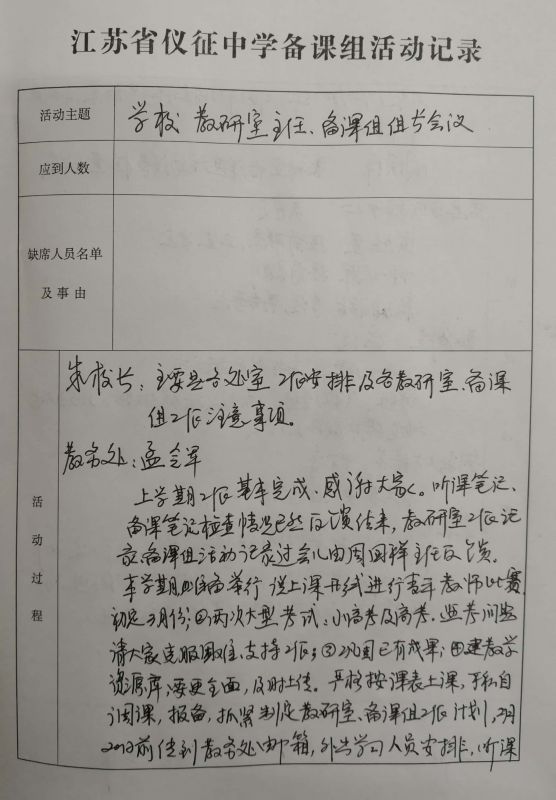 江苏省仪征中学备课组活动记录
活动主题
学校教研室主任、备课组组长会议
应到人数
缺席人员名单
及事由
活动过程
朱校长：主要是各处室工作安排及各教研室、备课
组工作注意事项。
教务处：孟令军
上学期工作基本完成、感谢大家。听课笔记、
备课笔记检查情况已然反馈结束，教研室工作记
录、备课组活动记录过会儿由周国祥主任反馈。
本学期准备举行 进行青年教师比赛
初定3月份；②两次大型考试、小高考及高考。监考问题
请大家克服困难、支持工作；③巩固已有成果；④建教学
资源库，要更全面，及时上传。严格按课表上课，不私自
调课，报备，抓紧制定教研室、备课组工作计划，2月
前传到教务处邮箱，外出学习人员安排，听课